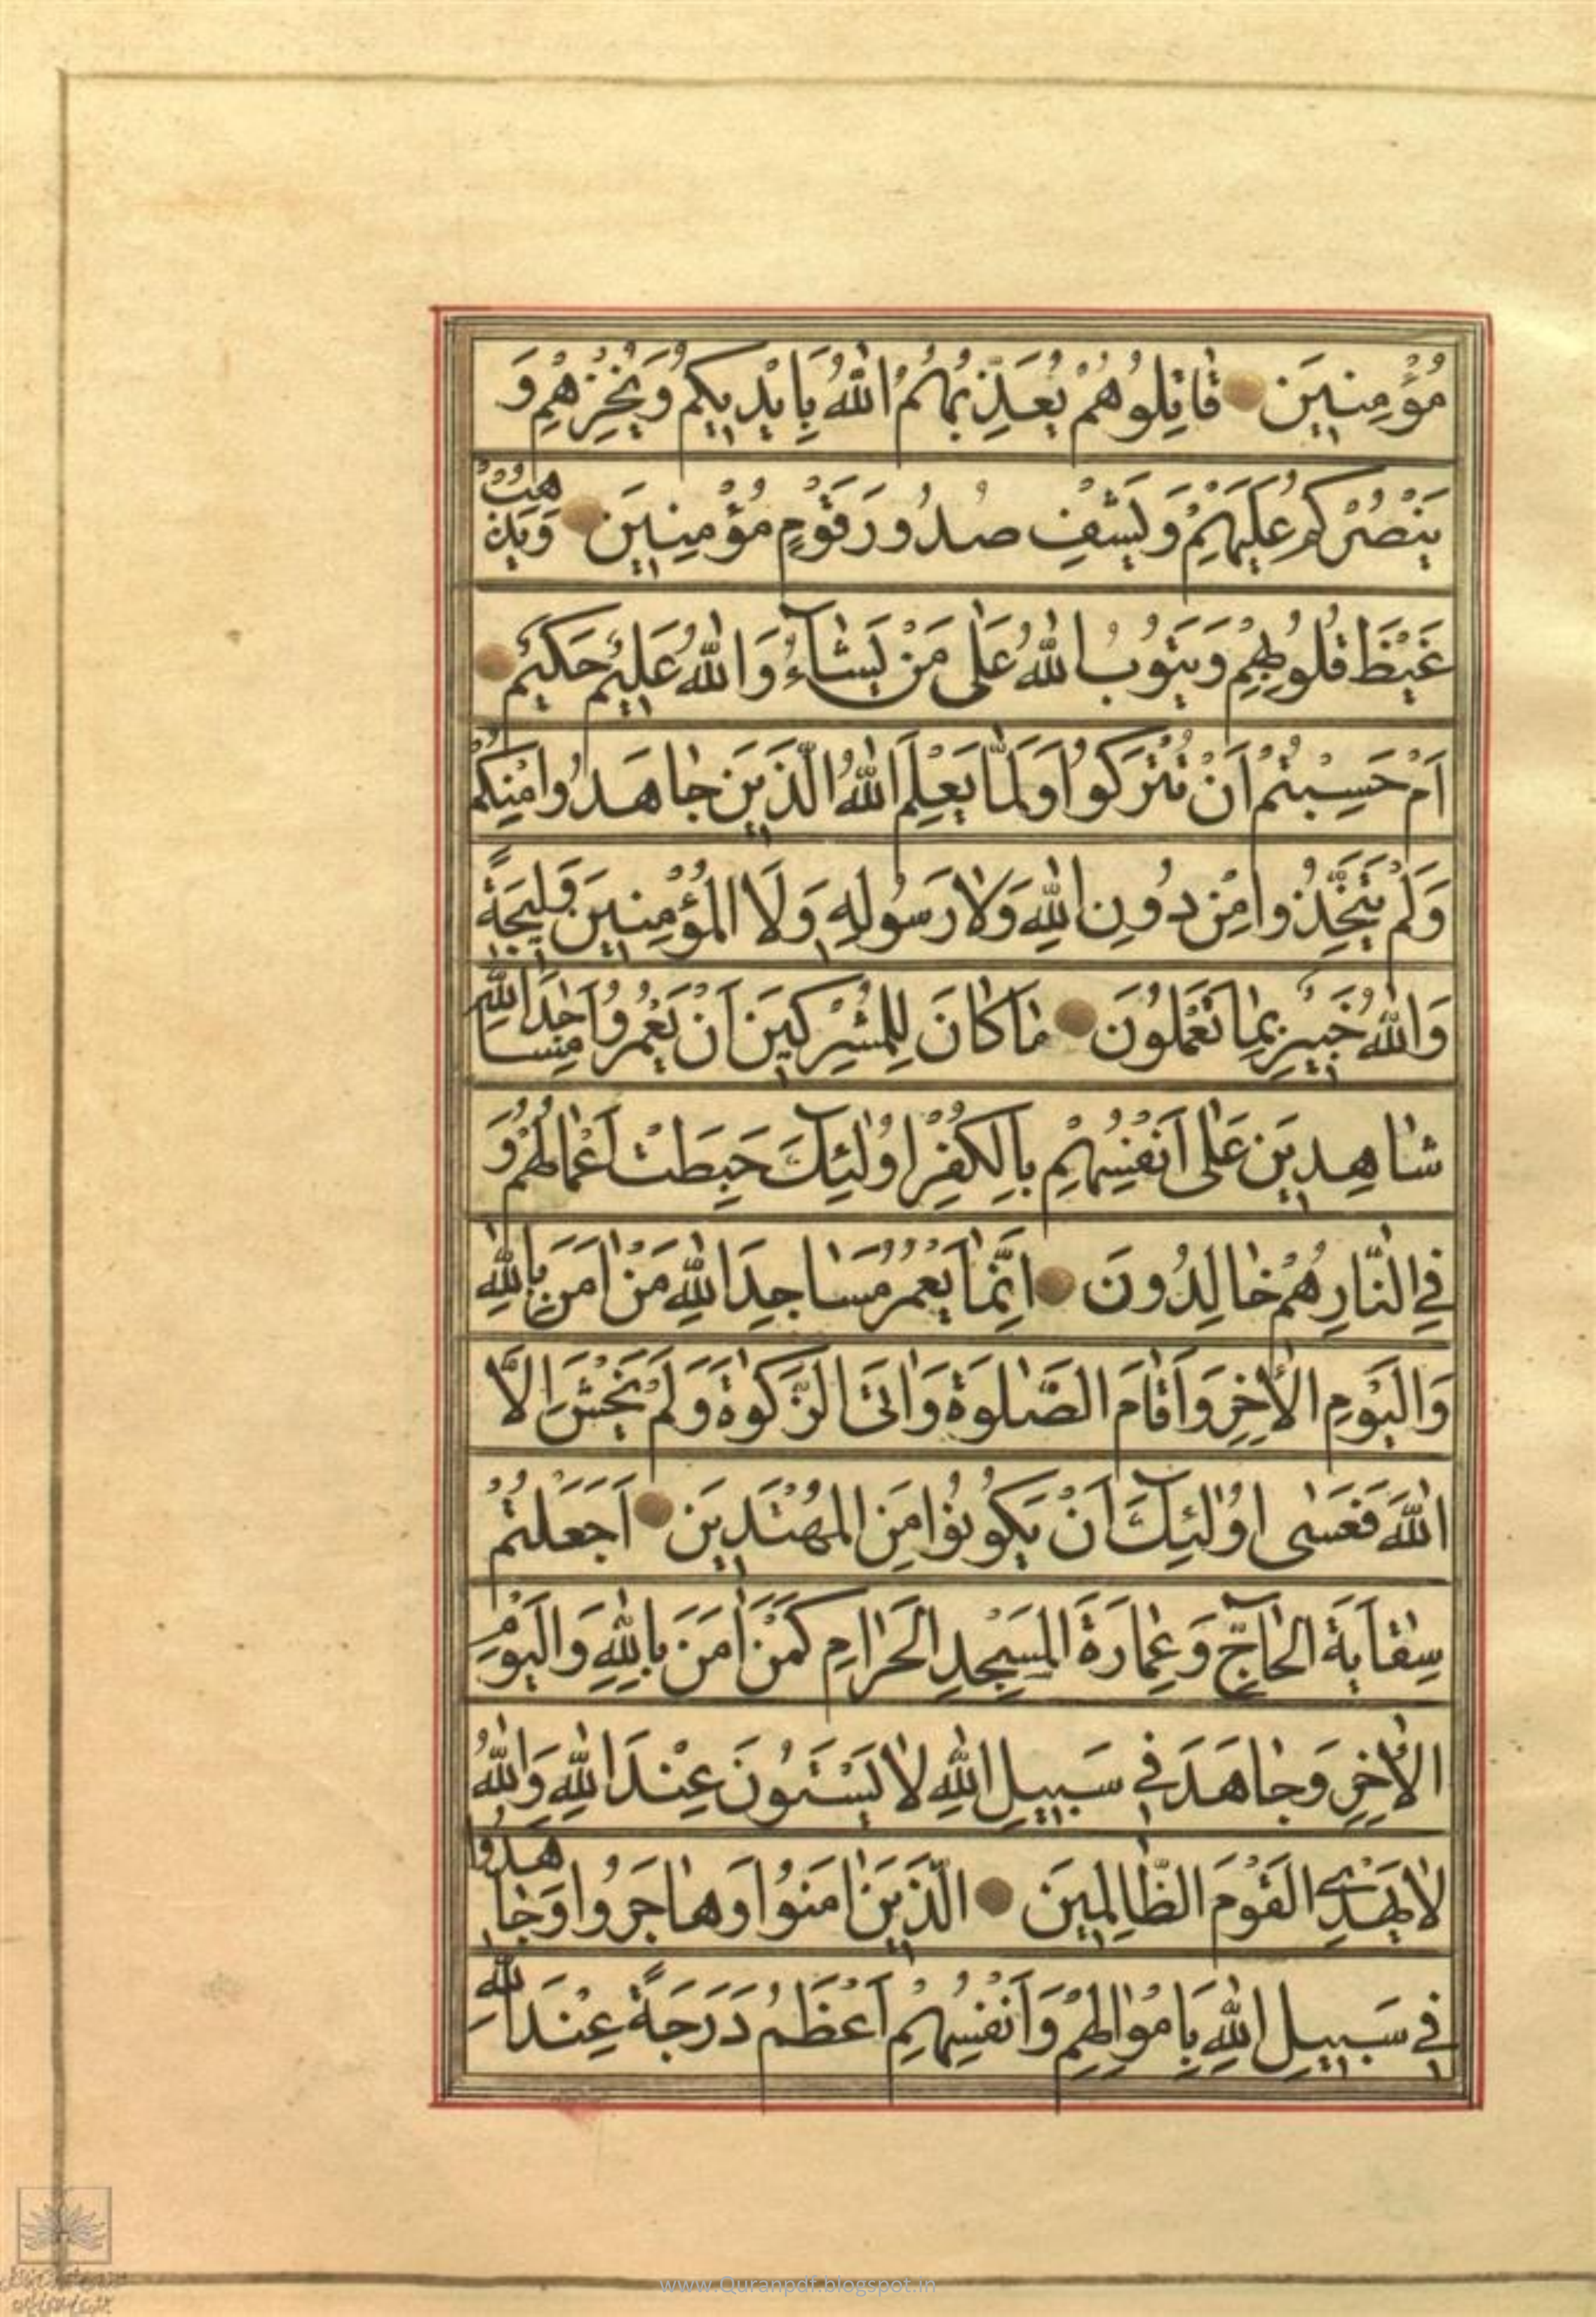 مُؤْمِنِينَ قَاتِلُوهُمْ يُعَذِّبْهُمُ اللّٰهُ بِاَيْدِيكُمْ وَيُخْزِهِمْ وَ
يَنْصُرْكُمْ عَلَيْهِمْ وَيَشْفِ صُدُورَ قَوْمٍ مُؤْمِنِينَ وَيُذْهِبْ
غَيْظَ قُلُوبِهِمْ وَيَتُوبُ اللّٰهُ عَلٰى مَنْ يَشٰٓاءُ وَاللّٰهُ عَلِيمٌ حَكِيمٌ
اَمْ حَسِبْتُمْ اَنْ تُتْرَكُوا وَلَمَّا يَعْلَمِ اللّٰهُ الَّذِينَ جٰاهَدُوا مِنْكُمْ
وَلَمْ يَتَّخِذُوا مِنْ دُونِ اللّٰهِ وَلٰا رَسُولِهِ وَلَا الْمُؤْمِنِينَ وَلِيجَةً
وَاللّٰهُ خَبِيرٌ بِمٰا تَعْمَلُونَ مٰا كٰانَ لِلْمُشْرِكِينَ اَنْ يَعْمُرُوا مَسٰاجِدَ اللّٰهِ
شٰاهِدِينَ عَلٰى اَنْفُسِهِمْ بِالْكُفْرِ اُولٰٓئِكَ حَبِطَتْ اَعْمٰالُهُمْ وَ
فِي النّٰارِ هُمْ خٰالِدُونَ اِنَّمٰا يَعْمُرُ مَسٰاجِدَ اللّٰهِ مَنْ اٰمَنَ بِاللّٰهِ
وَالْيَوْمِ الْاٰخِرِ وَاَقٰامَ الصَّلٰوةَ وَاٰتَى الزَّكٰوةَ وَلَمْ يَخْشَ اِلَّا
اللّٰهَ فَعَسٰى اُولٰٓئِكَ اَنْ يَكُونُوا مِنَ الْمُهْتَدِينَ اَجَعَلْتُمْ
سِقٰايَةَ الْحٰاجِّ وَعِمٰارَةَ الْمَسْجِدِ الْحَرٰامِ كَمَنْ اٰمَنَ بِاللّٰهِ وَالْيَوْمِ
الْاٰخِرِ وَجٰاهَدَ فِي سَبِيلِ اللّٰهِ لٰا يَسْتَوُونَ عِنْدَ اللّٰهِ وَاللّٰهُ
لٰا يَهْدِي الْقَوْمَ الظّٰالِمِينَ الَّذِينَ اٰمَنُوا وَهٰاجَرُوا وَجٰاهَدُوا
فِي سَبِيلِ اللّٰهِ بِاَمْوٰالِهِمْ وَاَنْفُسِهِمْ اَعْظَمُ دَرَجَةً عِنْدَ اللّٰهِ
www.Quranpdf.blogspot.in